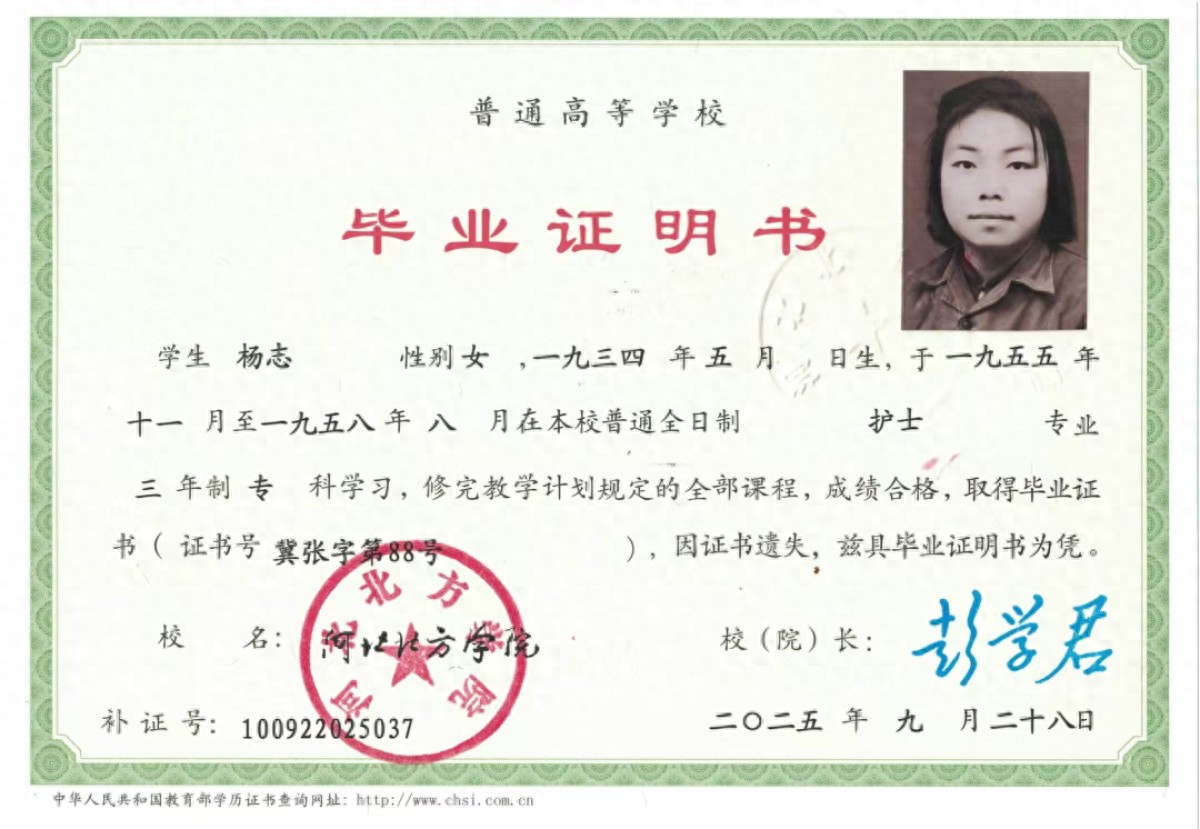 普通高等学校
毕业证明书
学生 杨志 性别 女 ,一九三四 年 五 月 日生，于 一九五五 年
十一 月至一九五八 年 八 月在本校普通全日制 护士 专业
三 年制 专 科学习，修完教学计划规定的全部课程，成绩合格，取得毕业证
书（ 证书号 冀张字第88号 ），因证书遗失，兹具毕业证明书为凭。
校 名： 河北北方学院
河北北方学院
校（院）长： 彭学君
补 证 号： 100922025037
二〇二五 年 九 月 二十八日
中华人民共和国教育部学历证书查询网址：http://www.chsi.com.cn